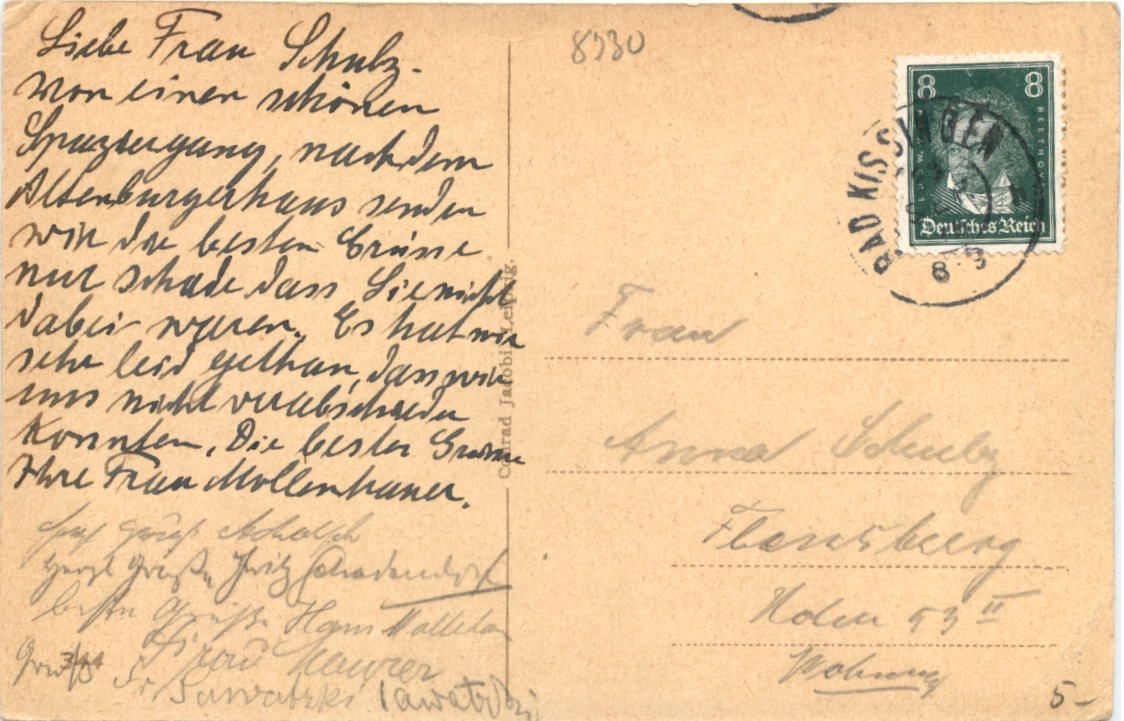 Liebe Frau Schulz.
von einen schönen
Spaziergang, nach dem
Altenburgerhaus senden
wir die besten Grüsse.
nur schade dass Sie nicht
dabei waren. Es hat mir
sehr leid gethan, dass wir
uns nicht verabschieden
konnten. Die besten Grüsse
Ihre Frau Mollenhauer.
Gruß
Herzl. Grüße Fritz Schadendorf
beste Grüße Hans
Frau
Gruß Fr Sawatzki Sawatzki
344
Conrad Jacobi, Leipzig.
8730
8 8
LUDW. V. BEETHOVEN
Deutsches Reich
BAD KISSINGEN
8-9
Frau
Anna Schulz
Flensburg
Holm 53 II
Wohnung
5-